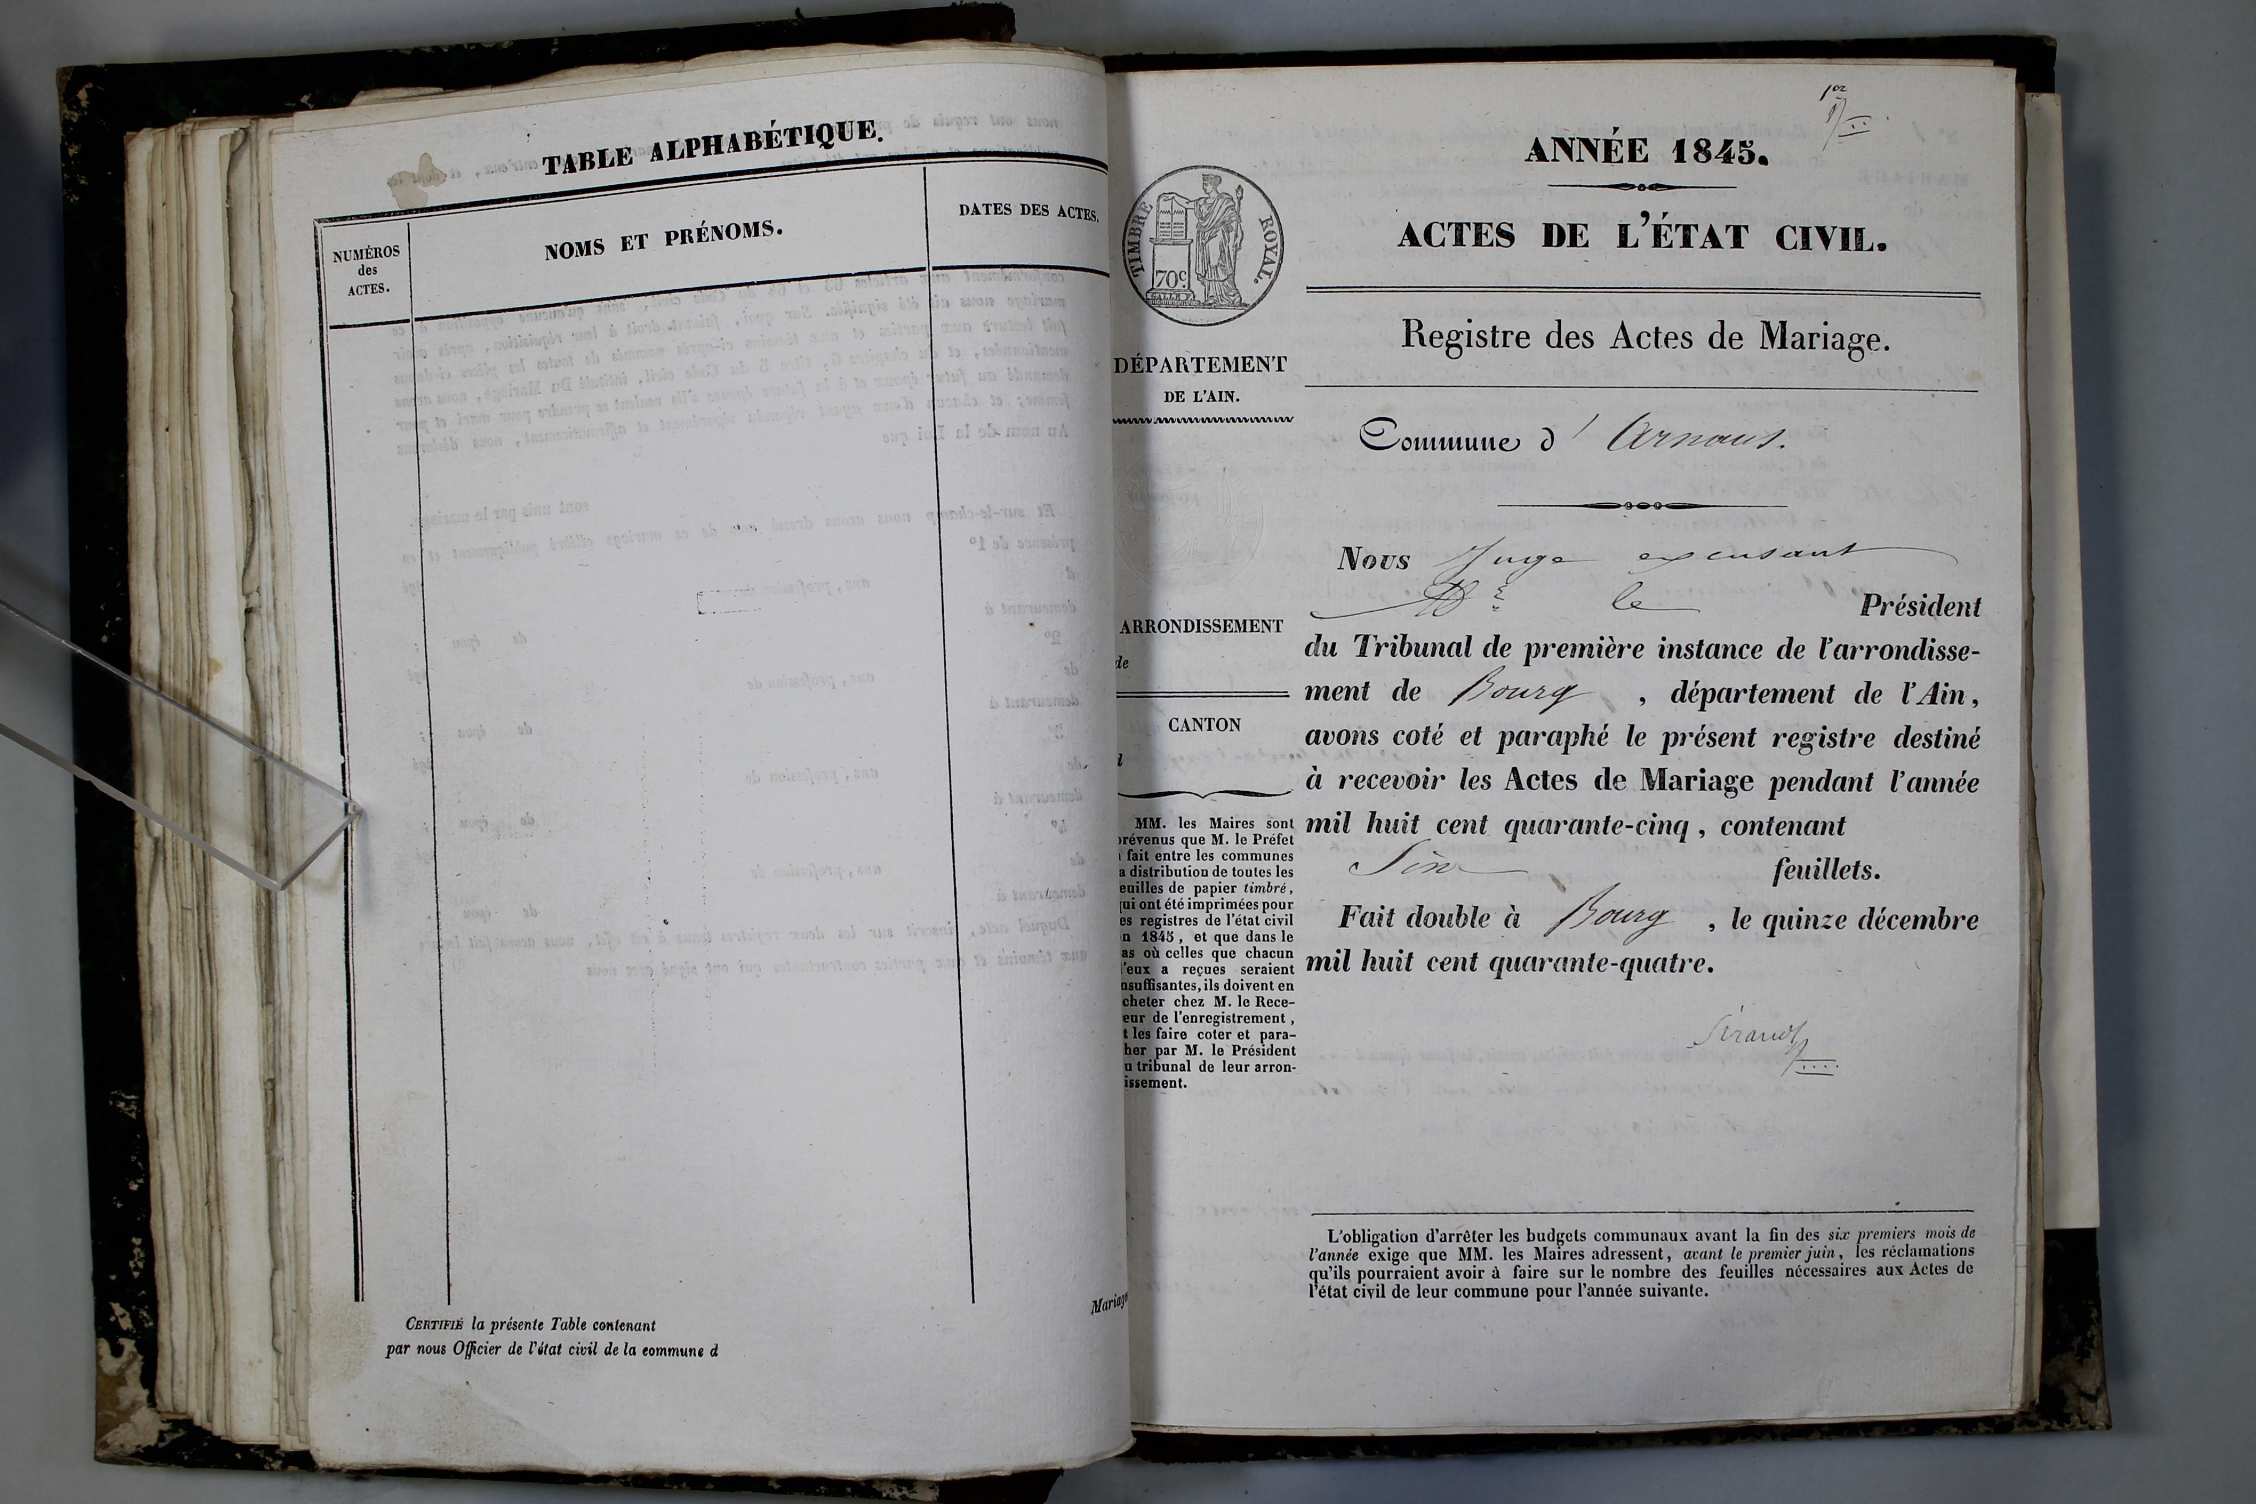 TABLE ALPHABÉTIQUE.
NUMÉROS
des
ACTES.
NOMS ET PRÉNOMS.
DATES DES ACTES.
CERTIFIÉ la présente Table contenant
par nous Officier de l'état civil de la commune d
Mariage
1er
ANNÉE 1845.
ACTES DE L'ÉTAT CIVIL.
Registre des Actes de Mariage.
TIMBRE ROYAL.
70c
DÉPARTEMENT
DE L'AIN.
ARRONDISSEMENT
de
CANTON
MM. les Maires sont
prévenus que M. le Préfet
fait entre les communes
distribution de toutes les
feuilles de papier timbré,
qui ont été imprimées pour
es registres de l'état civil
n 1845, et que dans le
as où celles que chacun
d'eux a reçues seraient
nsuffisantes, ils doivent en
cheter chez M. le Rece-
eur de l'enregistrement,
t les faire coter et para-
her par M. le Président
u tribunal de leur arron-
issement.
Commune d' Arnans.
Nous Juge excusant
Mr le Président
du Tribunal de première instance de l'arrondisse-
ment de Bourg, département de l'Ain,
avons coté et paraphé le présent registre destiné
à recevoir les Actes de Mariage pendant l'année
mil huit cent quarante-cinq, contenant
feuillets.
Fait double à Bourg, le quinze décembre
mil huit cent quarante-quatre.
L'obligation d'arrêter les budgets communaux avant la fin des six premiers mois de
l'année exige que MM. les Maires adressent, avant le premier juin, les réclamations
qu'ils pourraient avoir à faire sur le nombre des feuilles nécessaires aux Actes de
l'état civil de leur commune pour l'année suivante.